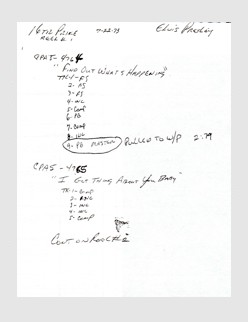 16TH PRIME 7-22-73 Elvis Presley
REEL 1
CPA5-4764
"FIND OUT WHAT'S HAPPENING"
TK1-FS
2- FS
3- FS
4- INC
5- Comp
6- FB
7- Comp
8- INC
9- FB MASTER PULLED TO W/P 2:79
CPA5-4765
"I Got Thing About You Baby"
TK 1- Comp
3- INC
4- INC
5- Comp
CONT ON REEL